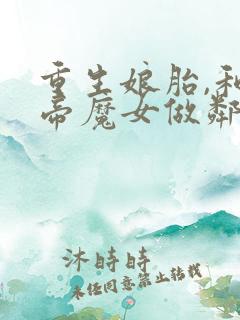 重生娘胎,和
帝魔女做鄰
沐時時
未任同意禁止轉載